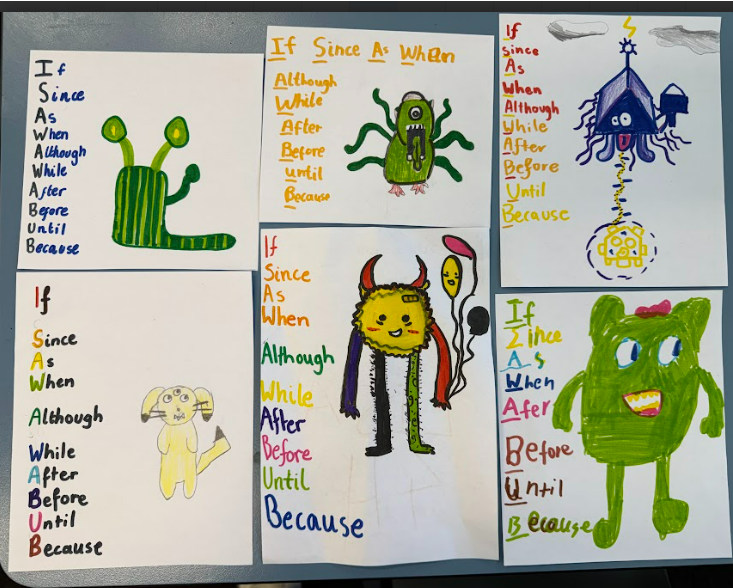 If
Since
As
When
Although
While
After
Before
Until
Because
If Since As When
Although
While
After
Before
until
Because
If
since
As
When
Although
While
After
Before
Until
Because
If
Since
As
When
Although
While
After
Before
Until
Because
If
Since
As
When
Although
While
After
Before
Until
Because
If
Zince
As
When
Afer
Before
Until
Because